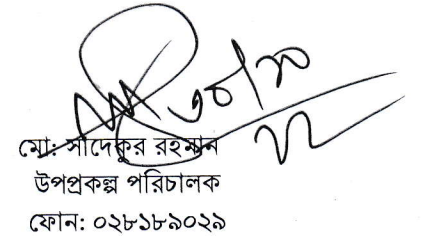 মো: সাদেকুর রহমান
উপপ্রকল্প পরিচালক
ফোন: ০২৮১৮৯০২৯